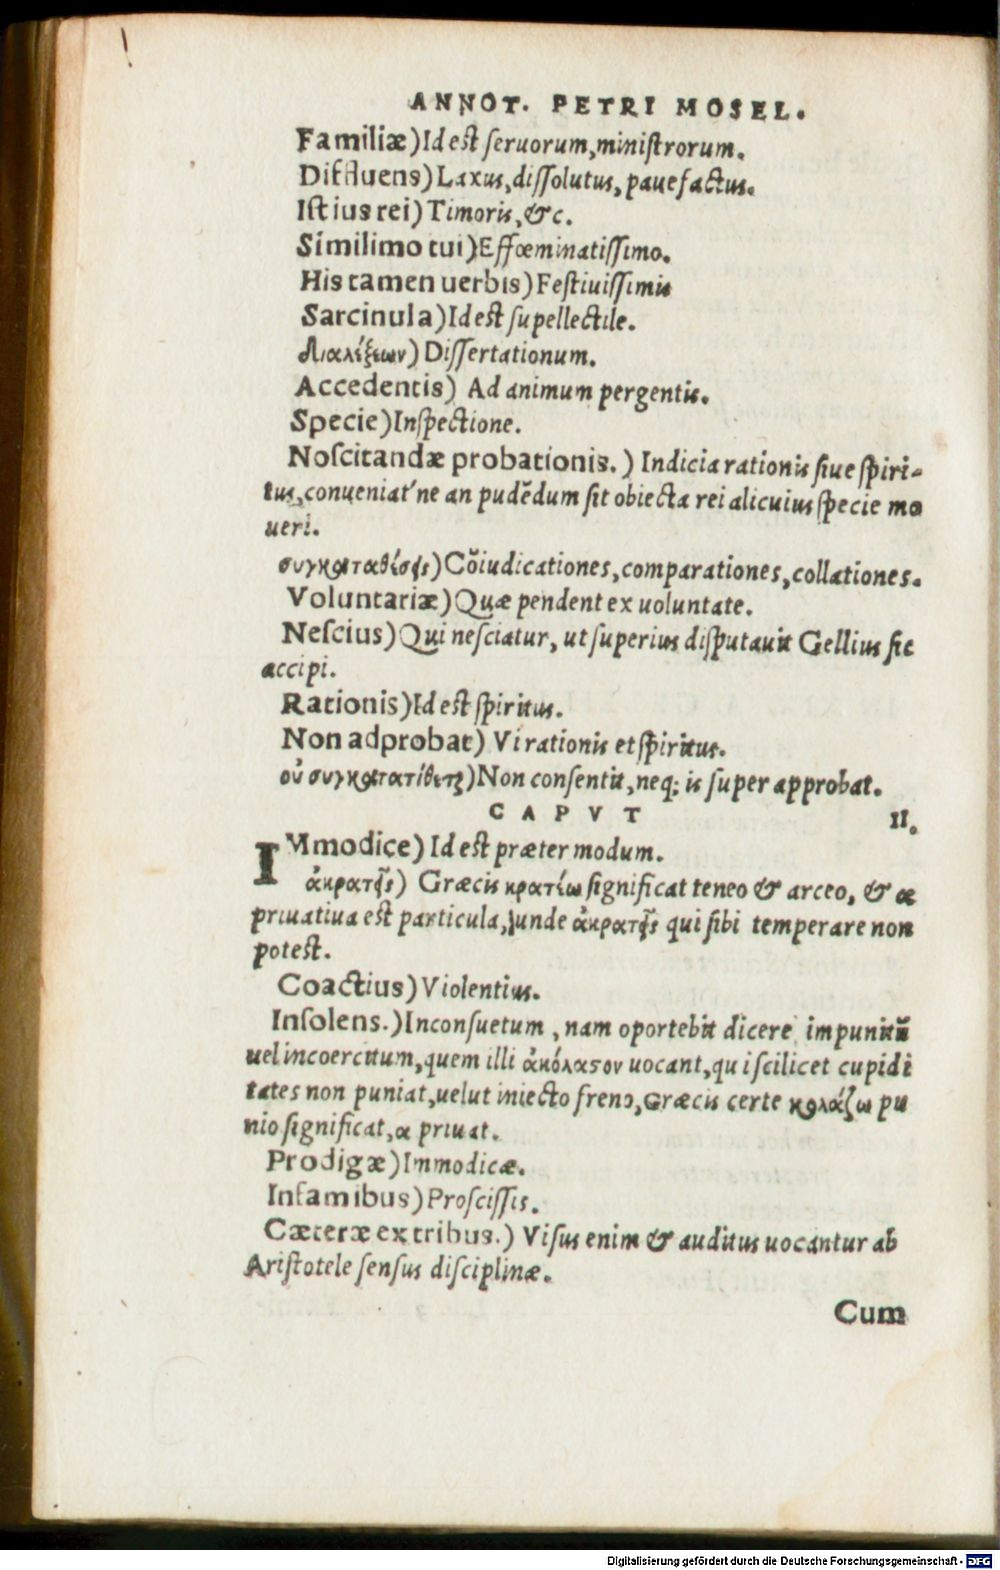 ANNOT. PETRI MOSEL.
Familiæ) Id est seruorum, ministrorum.
Diffluens) Laxus, dissolutus, pauefactus.
Istius rei) Timoris, &c.
Simillimo tui) Effœminatissimo.
His tamen uerbis) Festiuissimis
Sarcinula) Id est supellectile.
Διαλέξεων) Dissertationum.
Accedentis) Ad animum pergentis.
Specie) Inspectione.
Noscitandæ probationis.) Indicia rationis siue spiri-
tus, conueniat'ne an pudẽdum sit obiecta rei alicuius specie mo
ueri.
συγκαταθέσεις) Cõiudicationes, comparationes, collationes.
Voluntariæ) Quæ pendent ex uoluntate.
Nescius) Qui nesciatur, ut superius disputauit Gellius sic
accipi.
Rationis) Id est spiritus.
Non adprobat) Vi rationis et spiritus.
οὐ συγκατατίθεται) Non consentit, neq; is super approbat.
CAPVT II.
IMmodice) Id est præter modum.
ἀκρατὴς) Græcis κρατέω significat teneo & arceo, & α
priuatiua est particula, unde ἀκρατὴς qui sibi temperare non
potest.
Coactius) Violentius.
Insolens.) Inconsuetum, nam oportebit dicere impunitũ
uel incoercitum, quem illi ἀκόλαστον uocant, qui scilicet cupidi
tates non puniat, uelut iniecto freno, Græcis certe κολάζω pu
nio significat, α priuat.
Prodigæ) Immodicæ.
Infamibus) Proscissis.
Cæteræ ex tribus.) Visus enim & auditus uocantur ab
Aristotele sensus disciplinæ.
Cum
Digitalisierung gefördert durch die Deutsche Forschungsgemeinschaft - DFG